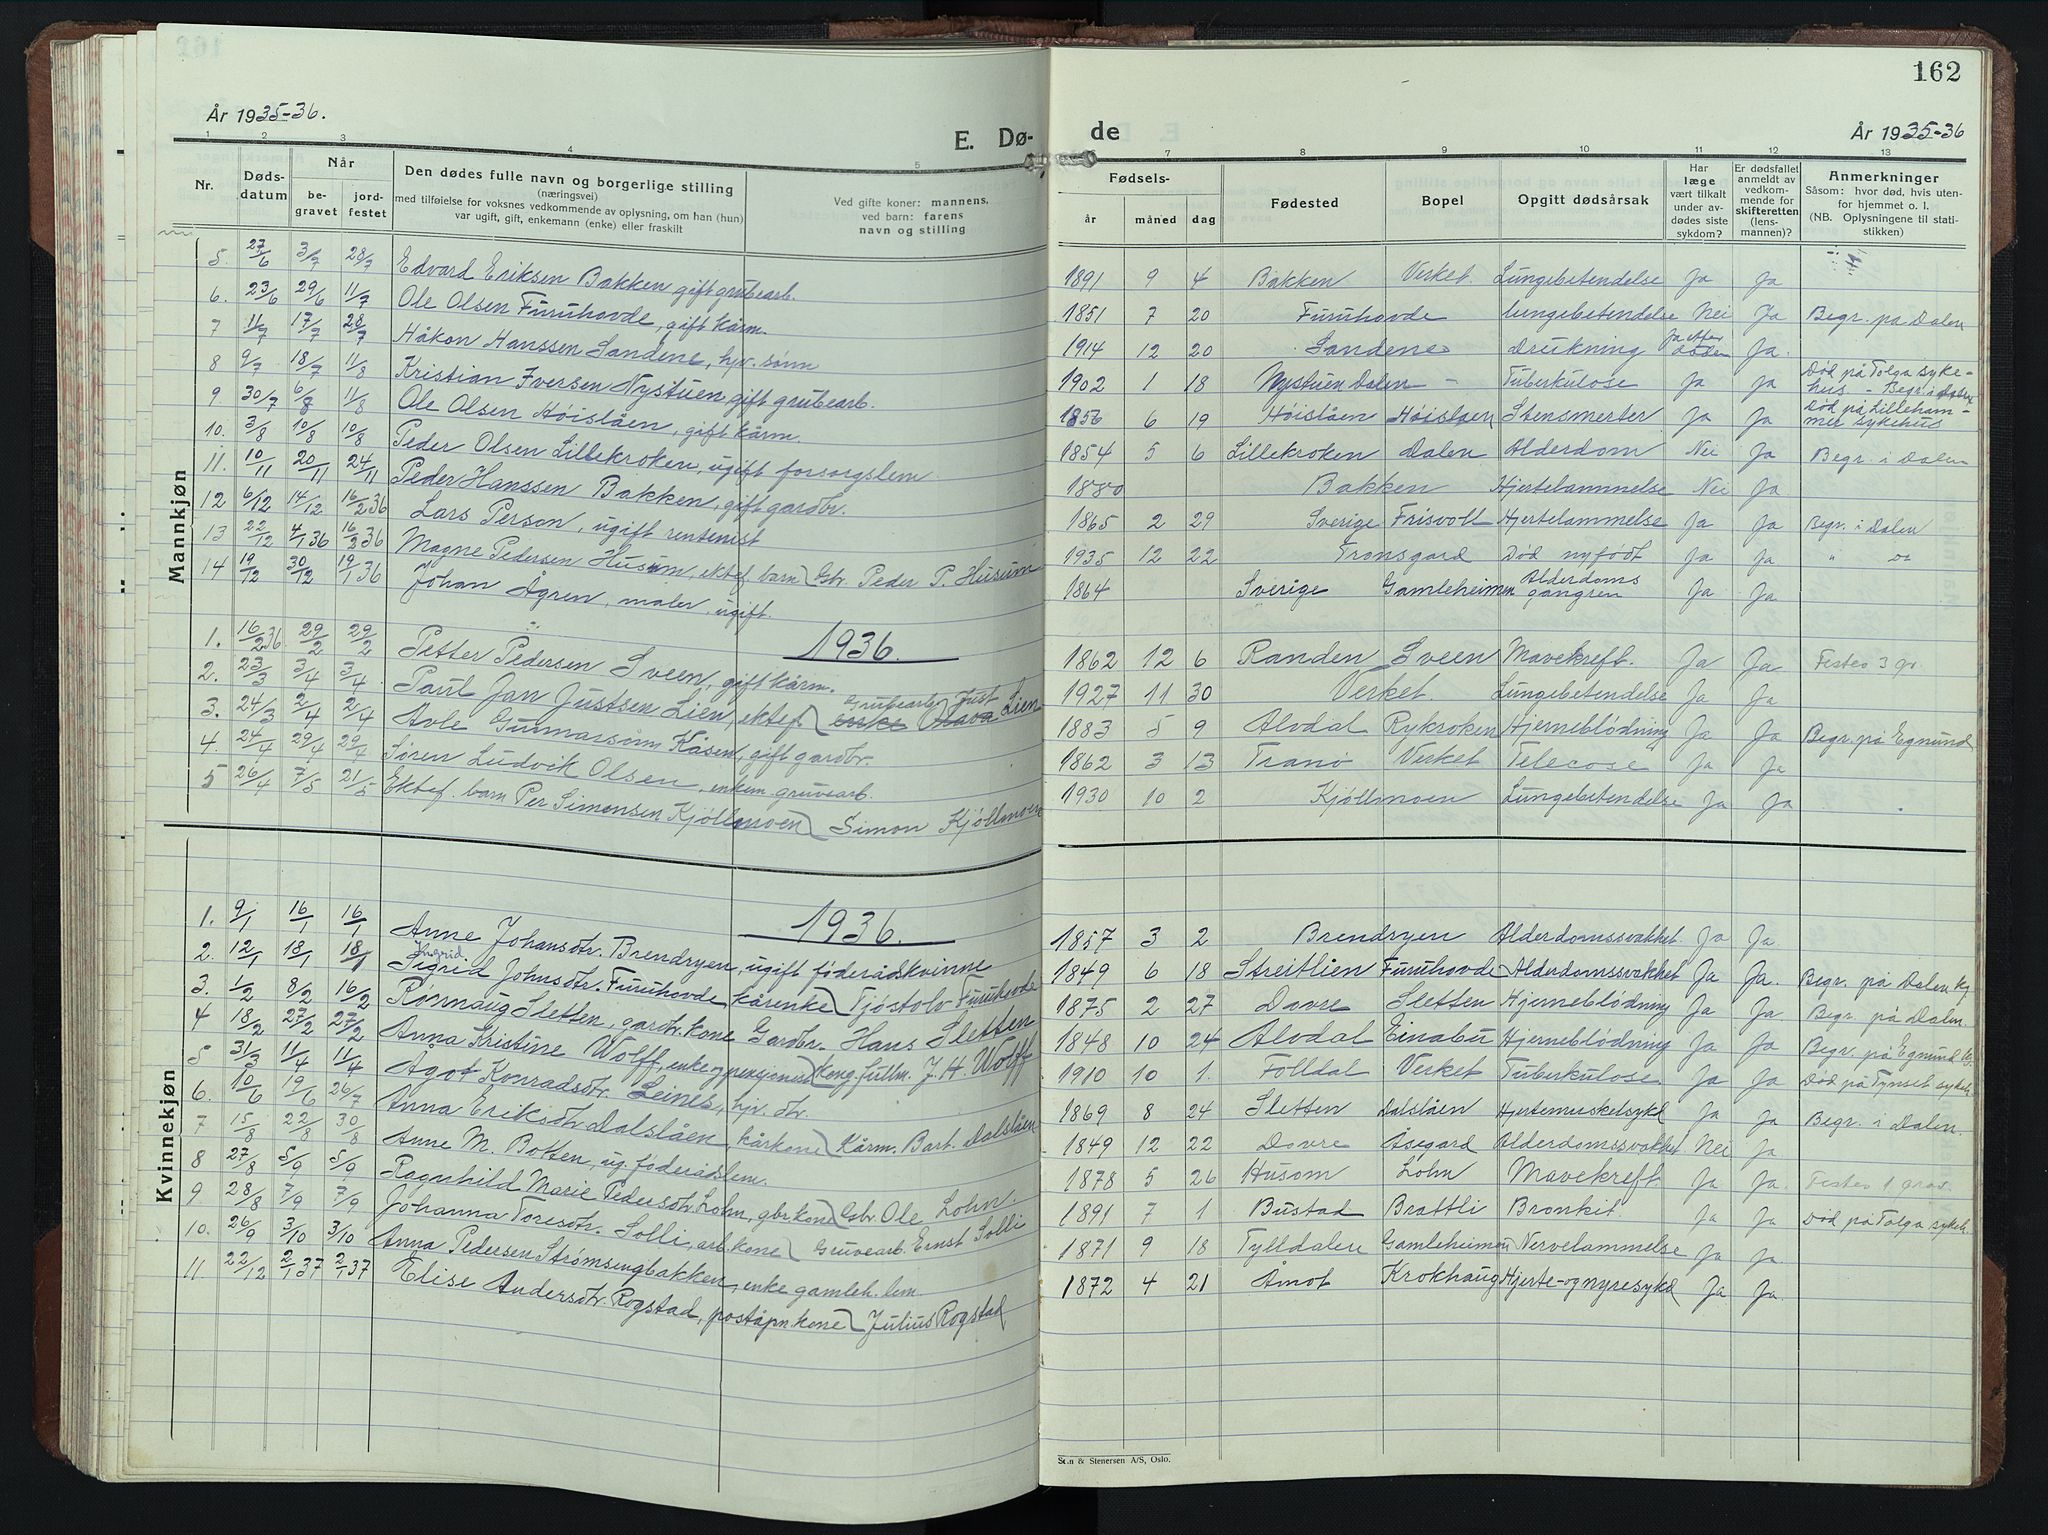 162
År 1935-36.
E. Dø- de
År 1935-36
1 2 3 4 5 7 8 9 10 11 12 13
Nr. Døds-datum Når be-gravet jord-festet Den dødes fulle navn og borgerlige stilling (næringsvei) med tilføielse for voksnes vedkommende av oplysning, om han (hun) var ugift, gift, enkemann (enke) eller fraskilt Ved gifte koner: mannens, ved barn: farens navn og stilling Fødsels- år måned dag Fødested Bopel Opgitt dødsårsak Har læge vært tilkalt under av-dødes siste sykdom? Er dødsfallet anmeldt av vedkom-mende for skifteretten (lens-mannen)? Anmerkninger Såsom: hvor død, hvis uten-for hjemmet o. l. (NB. Oplysningene til stati-stikken)
Mannkjøn
5. 27/6 3/7 28/7 Edvard Eriksen Bakken gift grubearb. 1891 9 4 Bakken Verket Lungebetendelse Ja Ja
6. 23/6 29/6 11/7 Ole Olsen Furuhovde, gift kårm. 1851 7 20 Furuhovde Lungebetendelse Nei Ja Begr. på Dalen
7 11/7 17/7 28/7 Håkon Hanssen Sandene, hjv. sønn 1914 12 20 Sandene Drukning Ja efter døden Ja.
8 9/7 18/7 11/8 Kristian Iversen Nystuen gift grubearb. 1902 1 18 Nystuen Dalen - Tuberkulose Ja Ja Død på Tolga syke-hus - Begr. i Dalen
9 30/7 6/8 11/8 Ole Olsen Høislåen, gift kårm. 1856 6 19 Høislåen Høislåen Stensmerter Ja Ja Død på Lilleham-mer sykehus
10. 3/8 10/8 10/8 Peder Olsen Lillekroken, ugift forsorgslem 1854 5 6 Lillekroken Dalen Alderdom Nei Ja Begr. i Dalen
11. 10/11 20/11 24/11 Peder Hanssen Bakken, gift gardbr. 1880 Bakken Hjertelammelse Nei Ja
12 6/12 14/12 16/2 36 Lars Person, ugift rentenist 1865 2 29 Sverige Frisvoll Hjertelammelse Ja Ja Begr. i Dalen
13 22/12 4/1 36 16/2 36 Magne Pedersen Husum, ektef. barn Gbr. Peder P. Husum 1935 12 22 Tronsgard Død nyfødt Ja Ja " "
14 19/12 30/12 19/1 36 Johan Ågren, maler, ugift. 1864 Sverige Gamleheimen Alderdoms gangren Ja Ja
1936.
1. 16/2 36 29/2 29/2 Petter Pedersen Sveen, gift kårm. 1862 12 6 Randen Sveen Mavekreft. Ja Ja Festes 3 gr.
2. 23/3 3/4 3/4 Paul Jan Justsen Lien, ektef. Grubearb. Just Lien 1927 11 30 Verket Lungebetendelse Ja Ja
3. 24/3 2/4 2/4 Avle Gunnarsønn Kåsen, gift gardbr. 1883 5 9 Alvdal Rykroken Hjerneblødning Ja Ja Begr. på Egnund
4. 24/4 29/4 29/4 Søren Ludvik Olsen, enkem. gruvearb. 1862 3 13 Tranø Verket Telecose Ja Ja
5 26/4 7/5 21/5 Ektef. barn Per Simensen Kjøllmoen Simon Kjøllmoen 1930 10 2 Kjøllmoen Lungebetendelse Ja Ja
Kvinnekjøn
1936.
1. 9/1 16/1 16/1 Anne Johansdtr. Brendryen, ugift føderådskvinne 1857 3 2 Brendryen Alderdomssvakhet Ja Ja
2. 12/1 18/1 18/1 Ingrid Sigrid Johnsdtr. Furuhovde kårenke Tjøstolv Furuhovde 1849 6 18 Streitlien Furuhovde Alderdomssvakhet Ja Ja. Begr. på Dalen kg
3. 1/2 8/2 16/2 Rønnaug Sletten, gardbr. kone Gardbr. Hans Sletten 1875 2 27 Dovre Sletten Hjerneblødning Ja Ja. Begr. på Dalen.
4 18/2 27/2 27/2 Anna Kristine Wolff, enke og pensjonist Kong. fullm. J. H. Wolff 1848 10 24 Alvdal Einabu Hjerneblødning Ja Ja Begr. på Egnund kg.
5 31/3 11/4 11/4 Ågot Konradsdtr. Leines, hjv. dtr. 1910 10 1. Folldal Verket Tuberkulose Ja Ja Død på Tynset sykeh.
6. 10/6 19/6 26/7 Anna Eriksdtr. Dalslåen, kårkone Kårm. Bart. Dalslåen 1869 8 24 Sletten Dalslåen Hjertemuskelsykd Ja Ja Begr. i Dalen.
7 15/8 22/8 30/8 Anne M. Botten, ug. føderådslem. 1849 12 22 Dovre Åsegard Alderdomssvakhet Nei Ja
8 27/8 5/9 5/9 Ragnhild Marie Pedersdtr. Lohn, gbr. kone Gbr. Ole Lohn. 1878 5 26 Husom Lohn Mavekreft Ja Ja. Festes 1 grav.
9 28/8 7/9 7/9 Johanna Toresdtr. Solli, arb. kone Gruvearb. Ernst Solli 1891 7 1 Bustad Brattli Bronkit. Ja Ja Død på Tolga sykeh.
10. 26/9 3/10 3/10 Anna Pedersen Strømsengbakken, enke gamleh. lem. 1871 9 18 Tylldalen Gamleheimen Nervelammelse Ja Ja.
11. 22/12 2/1 37 2/1 37 Elise Andersdtr. Rogstad, poståpn. kone Julius Rogstad 1872 4 21 Åmot Krokhaug Hjerte- og nyresykd Ja Ja.
Sten & Stenersen A/S, Oslo.